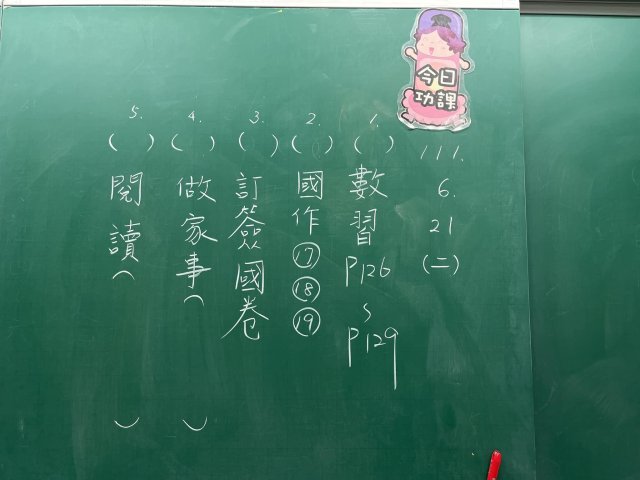 今日
功課
111.
6.
21
(二)
1.
( )
數習P126~P129
2.
( )
國作⑰⑱⑲
3.
( )
訂簽國卷
4.
( )
做家事( )
5.
( )
閱讀( )